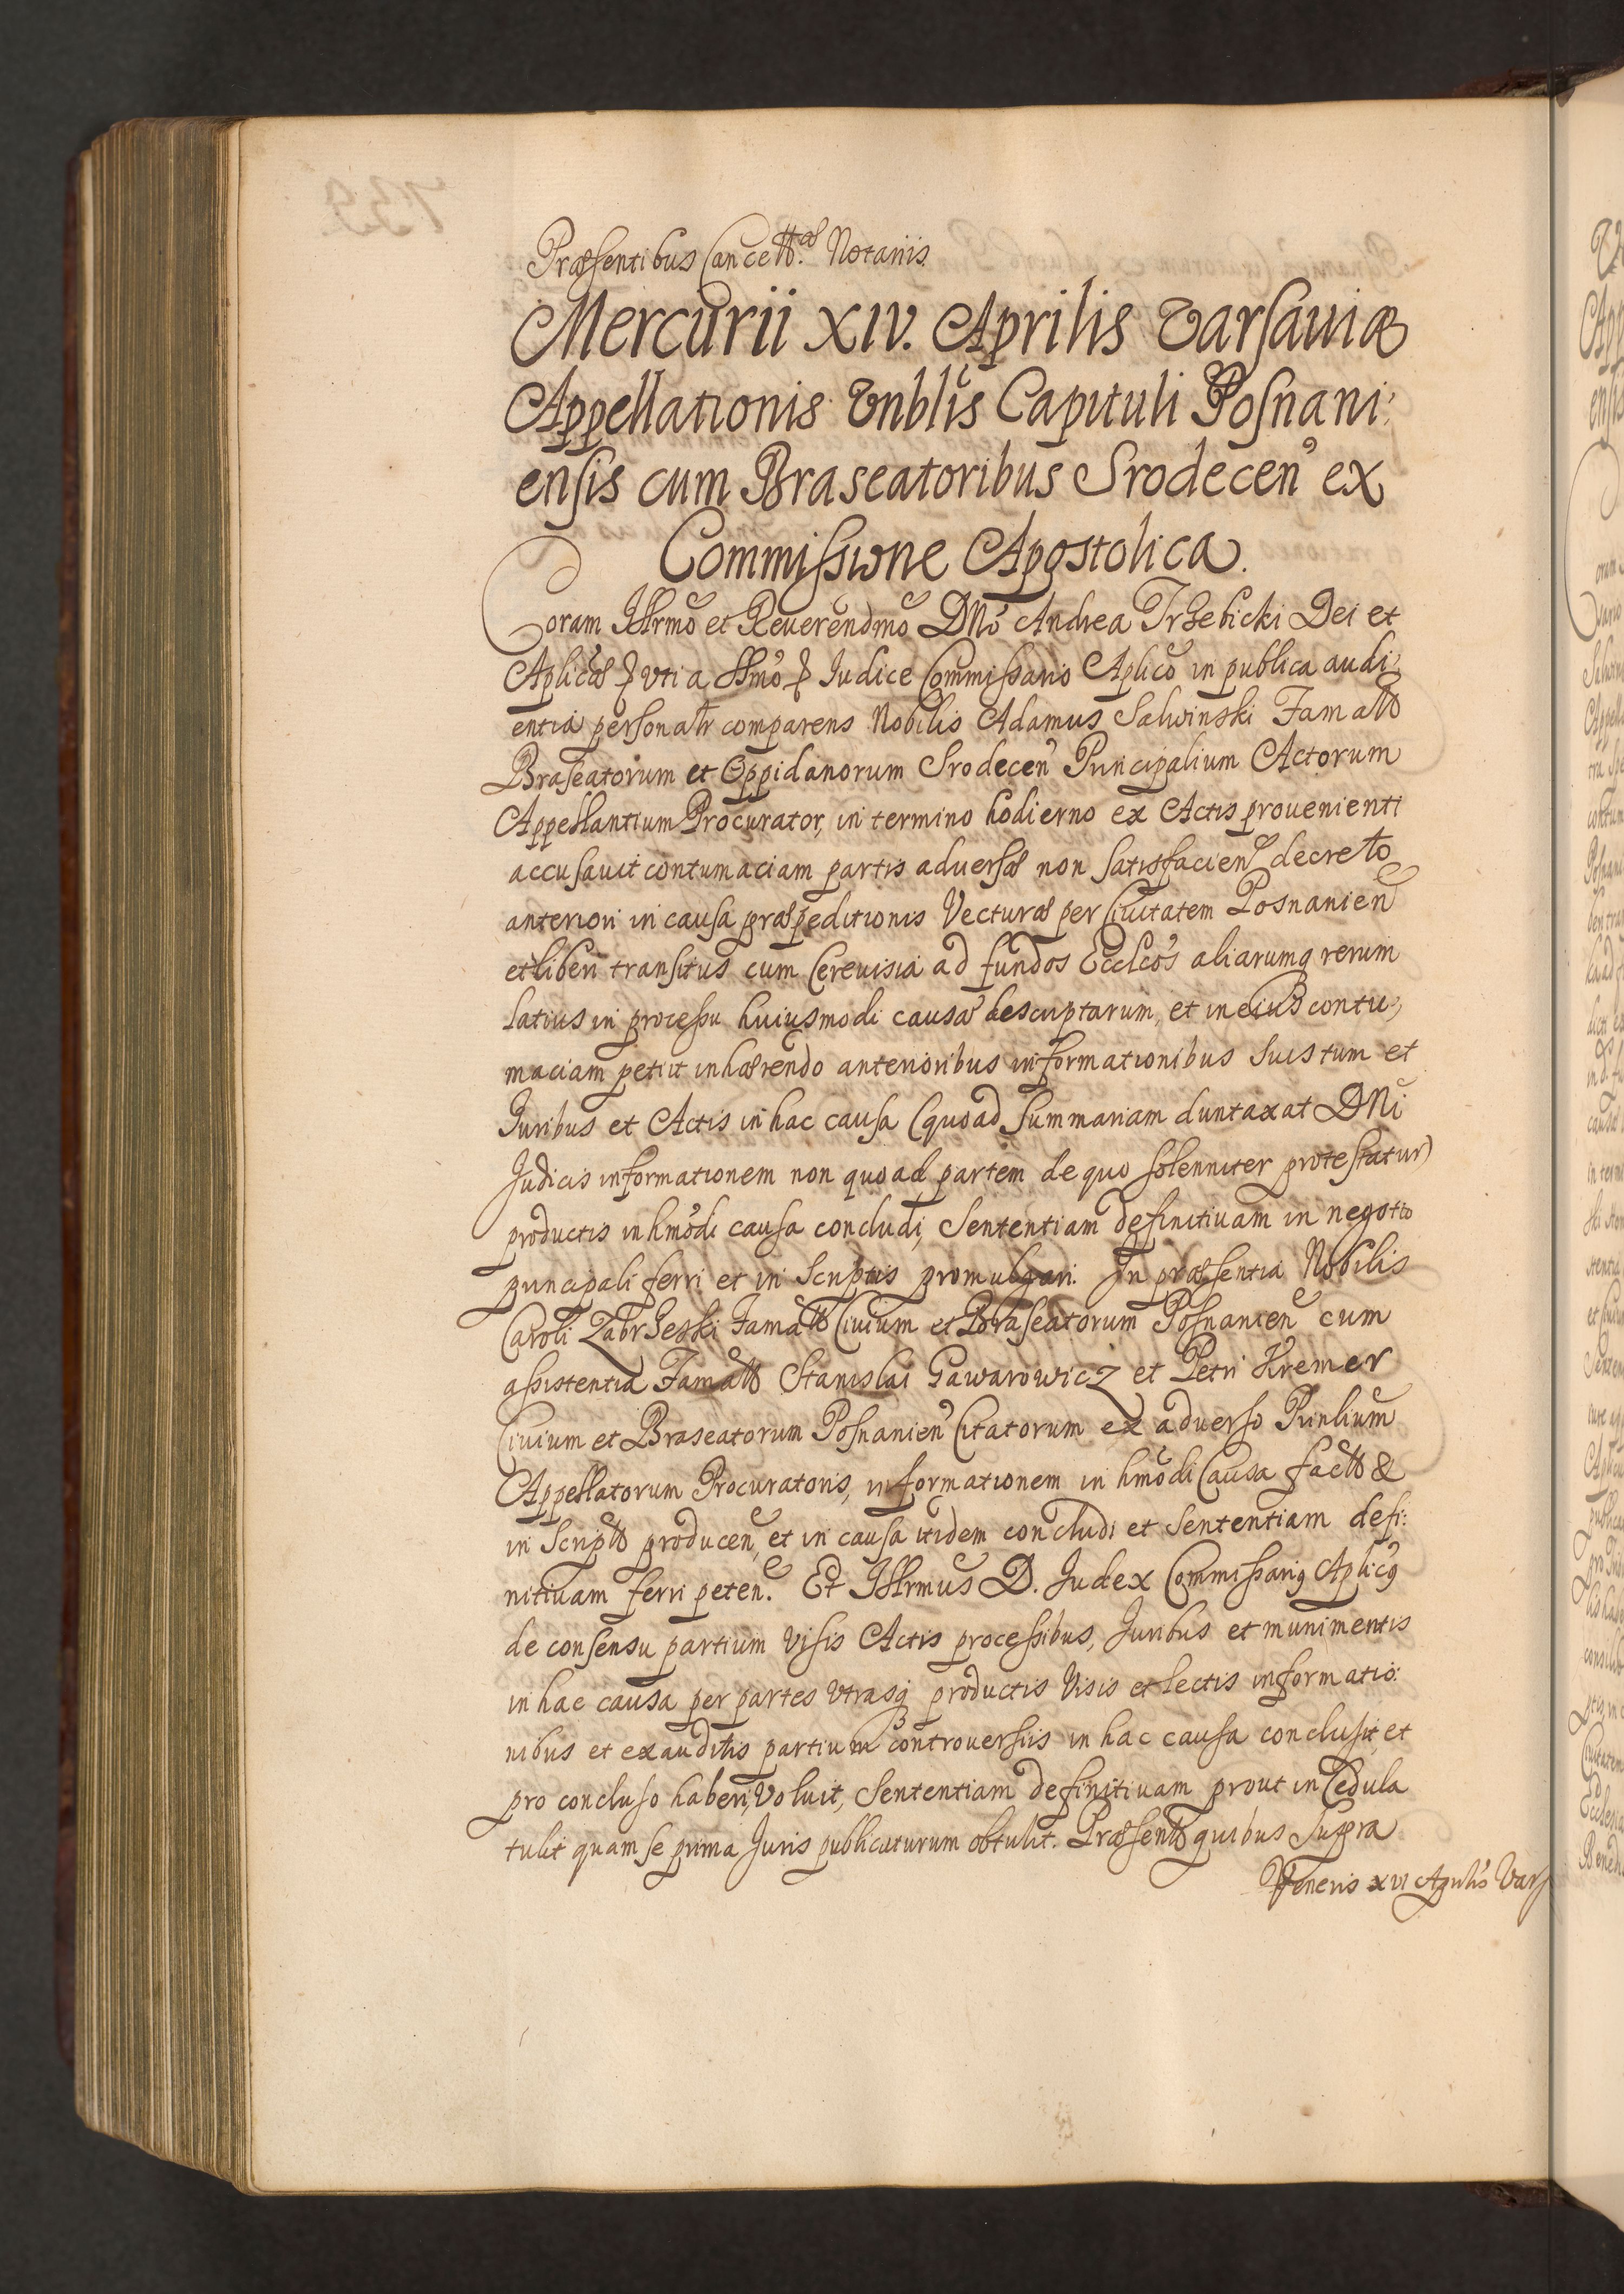 Præsentibus Cancell.æ Notariis.
Mercurii XIV. Aprilis Varsaviæ
Appellationis Vnblis Capituli Posnani:
ensis cum Braseatoribus Srodecen ex
Commissione Apostolica.
Coram Illrmo et Reuerendmo DNo Andrea Trzebicki Dei et
Aplicæ & vti a SSmo & Iudice Commissario Aplico in publica audi:
entia personalr comparens Nobilis Adamus Salwinski Famatt
Braseatorum et Oppidanorum Srodecen Principalium Actorum
Appellantium Procurator, in termino hodierno ex Actis prouenienti
accusauit contumaciam partis aduersæ non satisfacien decreto
anteriori in causa præpeditionis Vecturæ per Ciuitatem Posnanien
et liberi transitus cum Cereuisia ad fundos Ecclcos aliarumq rerum
latius in processu huiusmodi causæ descriptarum, et in eius contu:
maciam petiit inhærendo anterioribus informationibus suis tum et
Iuribus et Actis in hac causa (quoad Summariam duntaxat DNi
Judicis informationem non quoad partem de quo solenniter protestatur)
productis in hmodi causa concludi, Sententiam definitiuam in negotio
principali ferri et in Scriptis promulgari. In præsentia Nobilis
Caroli Zabrzeski Famatt Ciuium et Braseatorum Posnanien cum
assistentia Famatt Stanislai Gawarowicz et Petri Kremer
Ciuium et Braseatorum Posnanien Citatorum ex aduerso Prinlium
Appellatorum Procuratoris, informationem in hmodi Causa factt &
in Scriptt producen, et in causa itidem concludi et Sententiam defi:
nitiuam ferri peten. Et Illrmus D. Judex Commissariq Aplicq
de consensu partium visis Actis processibus, Iuribus et munimentis
in hac causa per partes vtrasq productis Visis et lectis informatio:
nibus et exauditis partium controuersiis in hac causa conclusit, et
pro concluso haberi voluit, Sententiam definitiuam prout in Cedula
tulit quam se prima Juris publicaturum obtulit. Præsentt quibus supra
Veneris XVI Aprilis Vars